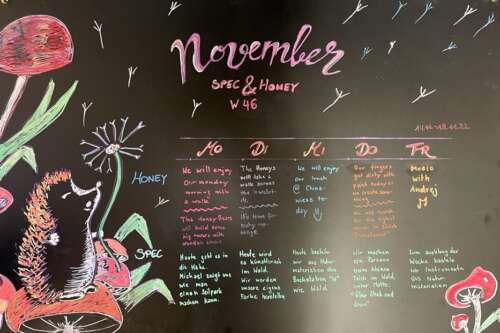 November
SPEC & HONEY
W 46
14.11-18.11.22
MO DI MI DO FR
HONEY
We will enjoy
Our monday
morning with
a walk
The Honey Bears
will build some
big towers with
wooden
The Honeys
will take a
walk across
time for
We will enjoy
Our lunch
@ China-
wiese to-
day
Our fingers
get dirty with
paint today as
we create some-
Music
with
Andrej
SPEC
Heute geht es in
die Höhe.
Michael zeigt uns
wie man
einen Seilpark
machen kann.
Heute wird
es künstlerisch
im Wald.
Wir werden
unsere eigene
Farbe herstellen
Heute basteln
wir aus Natur-
materialien den
Buchstaben "W"
wie Wald.
Wir machen
ein Parcour
zum kleinen
Teich im Wald,
unter Motto:
"Über Stock und
Stein"
Zum Ausklang der
Woche basteln
wir Instrumente
aus Natur-
materialien